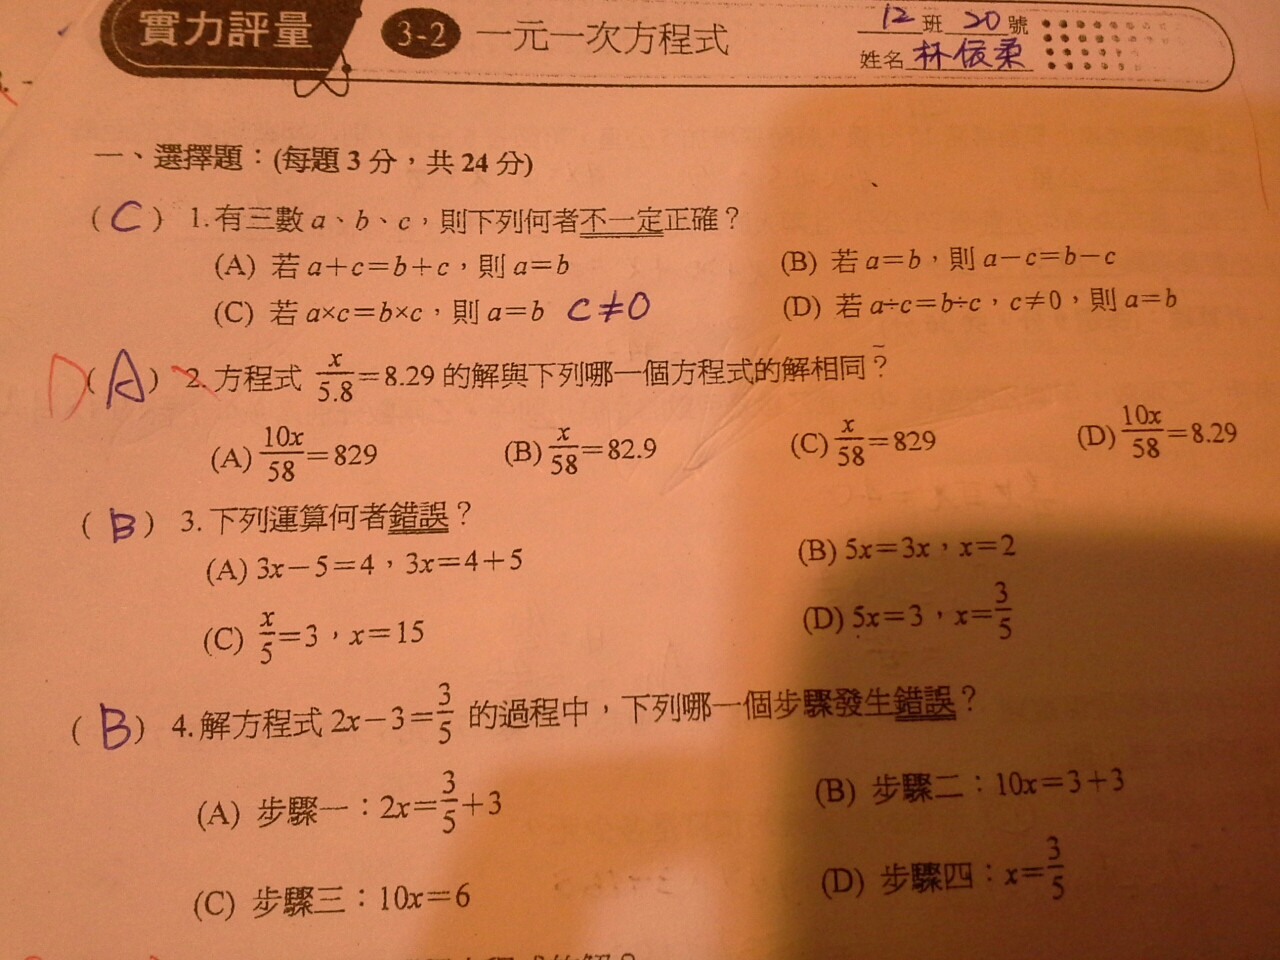 實力評量 3-2 一元一次方程式 12班 20號
姓名 林依柔
一、選擇題：(每題 3 分，共 24 分)
( C ) 1. 有三數 a、b、c，則下列何者不一定正確？
(A) 若 a+c=b+c，則 a=b (B) 若 a=b，則 a-c=b-c
(C) 若 a×c=b×c，則 a=b C≠0 (D) 若 a÷c=b÷c，c≠0，則 a=b
D ( A ) 2. 方程式 x/5.8=8.29 的解與下列哪一個方程式的解相同？
(A) 10x/58=829 (B) x/58=82.9 (C) x/58=829 (D) 10x/58=8.29
( B ) 3. 下列運算何者錯誤？
(A) 3x-5=4，3x=4+5 (B) 5x=3x，x=2
(C) x/5=3，x=15 (D) 5x=3，x=3/5
( B ) 4. 解方程式 2x-3=3/5 的過程中，下列哪一個步驟發生錯誤？
(A) 步驟一：2x=3/5+3 (B) 步驟二：10x=3+3
(C) 步驟三：10x=6 (D) 步驟四：x=3/5